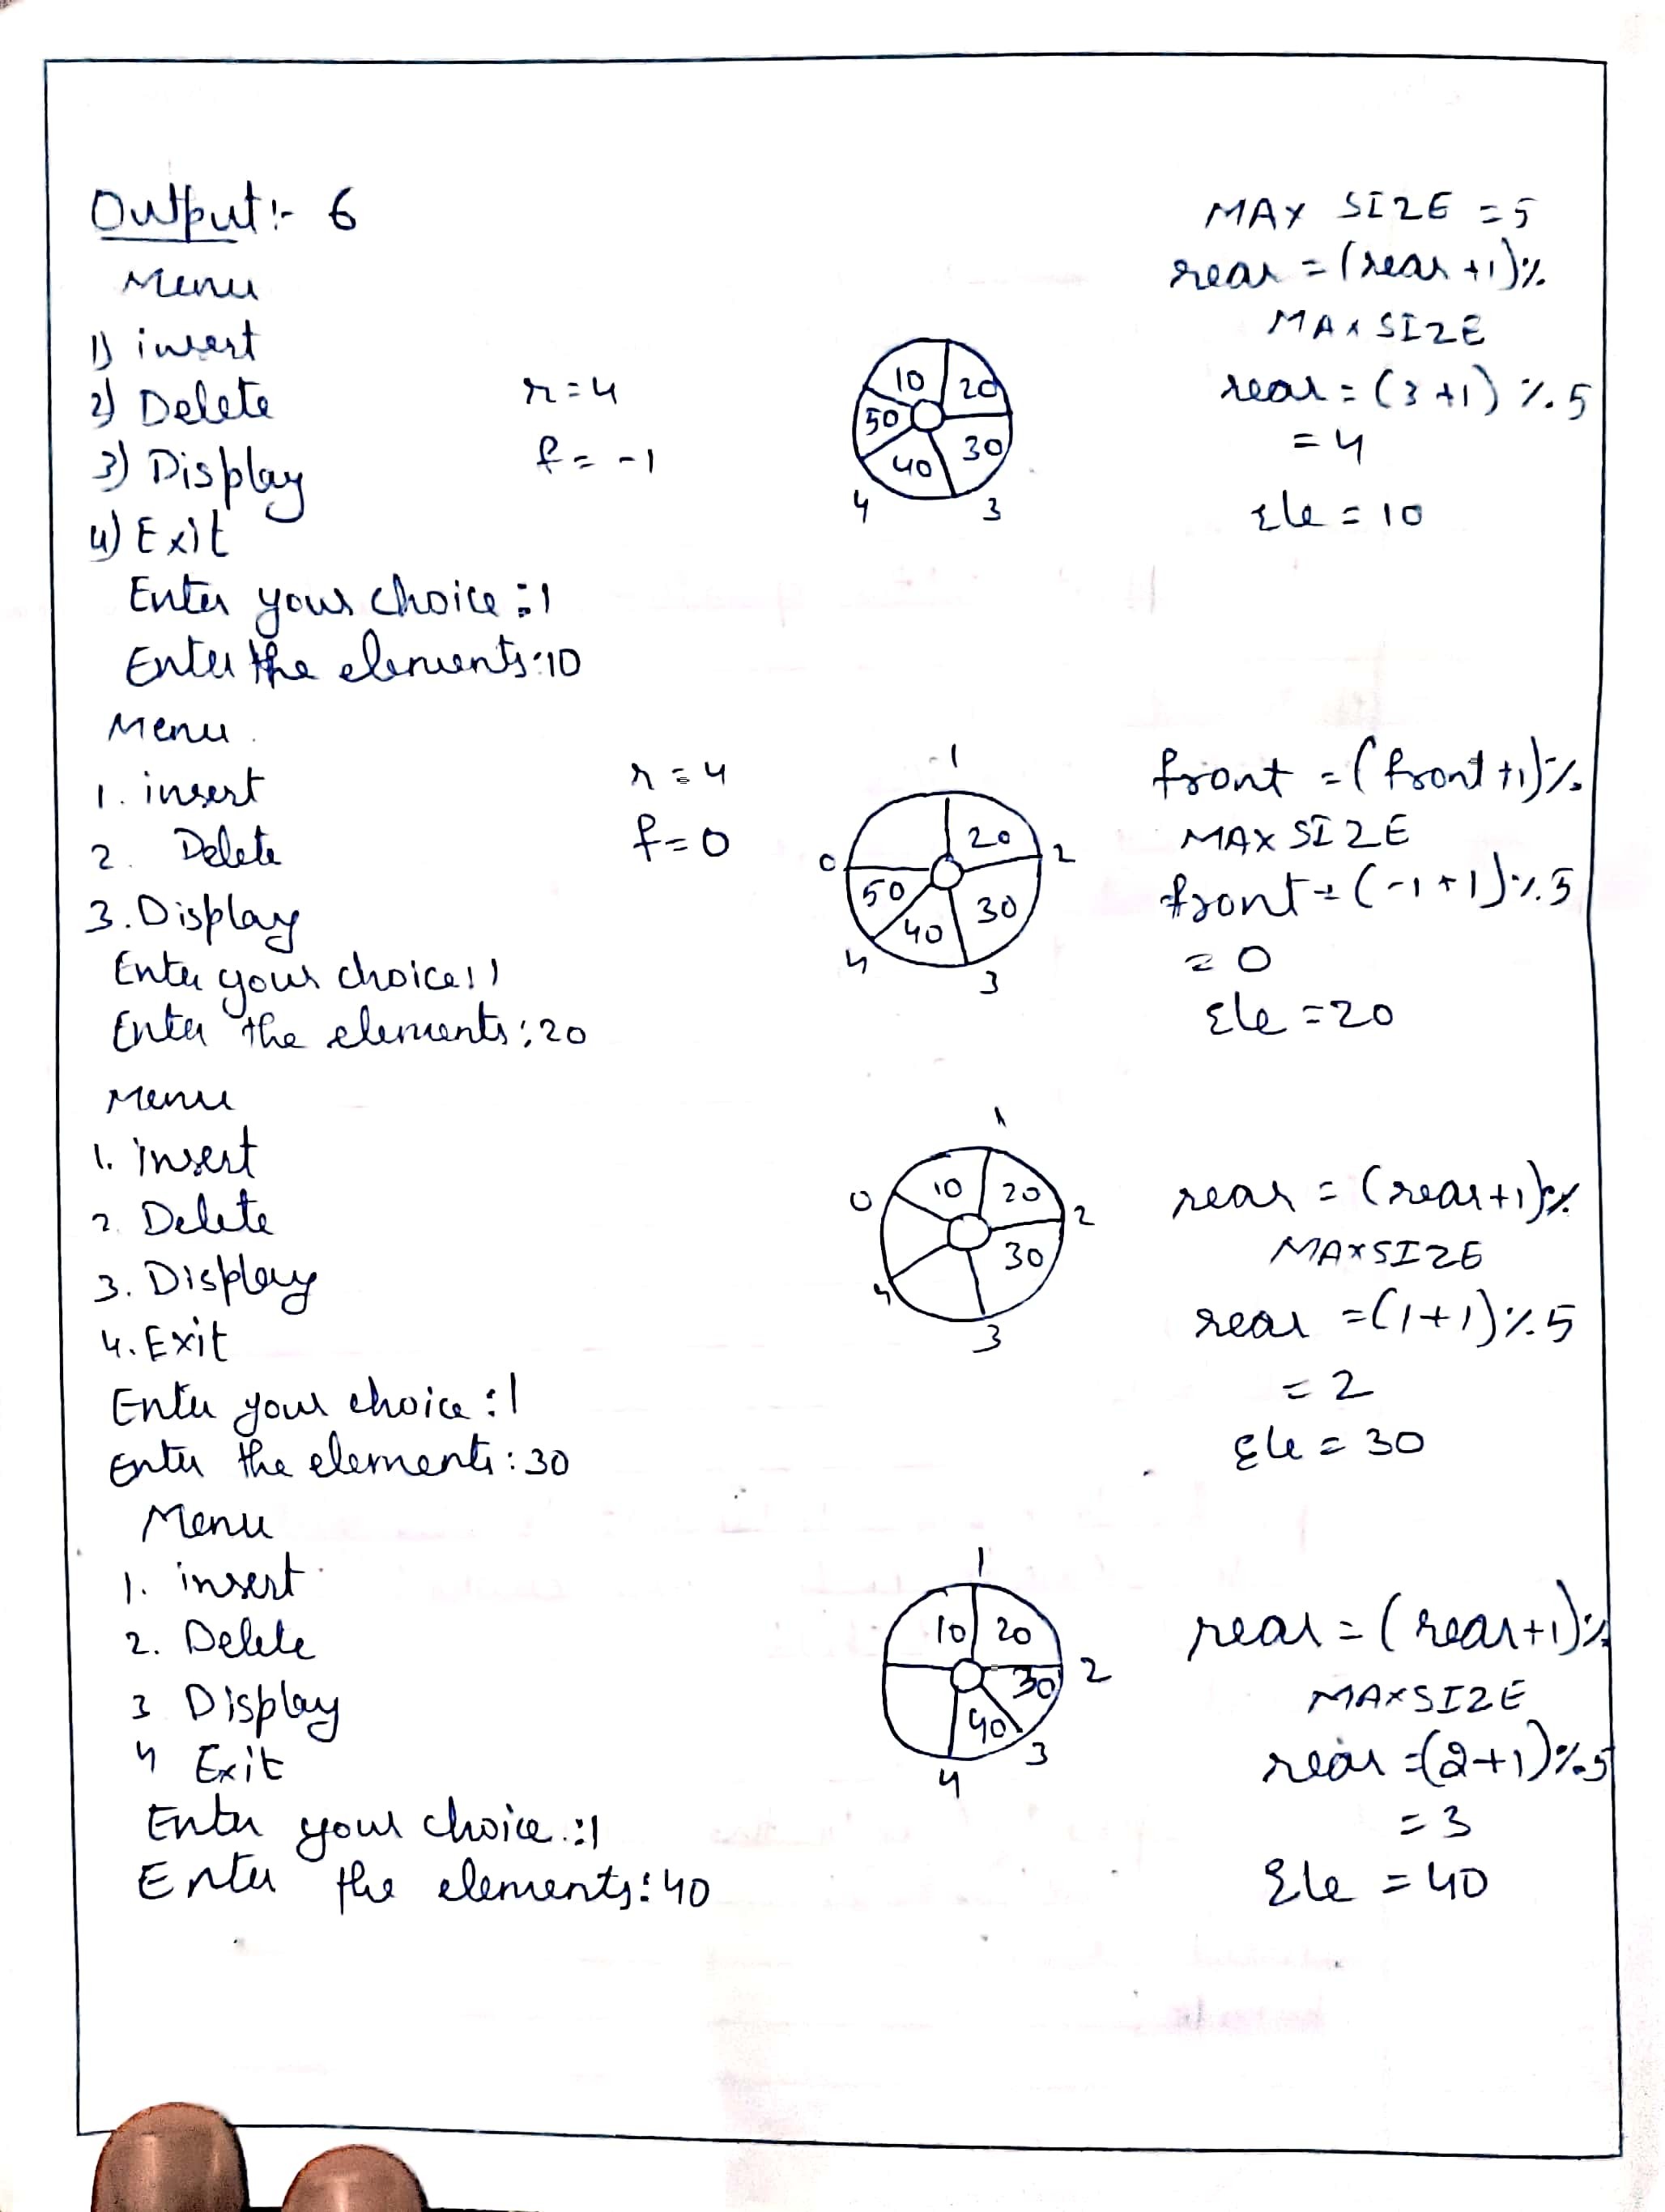 Output:- 6
Menu
1) insert
2) Delete
3) Display
4) Exit
Enter your choice:1
Enter the elements:10
r=4
f=-1
10 20
50 30
40
4 3
MAX SIZE =5
rear =(rear+1)%
MAXSIZE
rear=(3+1)%5
=4
Ele=10
Menu
1. insert
2. Delete
3. Display
Enter your choice:1
Enter the elements:20
r=4
f=0
-1
20
0 2
50 30
40
4 3
front =(front+1)%
MAX SIZE
front=(-1+1)%5
=0
Ele=20
Menu
1. insert
2. Delete
3. Display
4. Exit
Enter your choice:1
Enter the elements:30
1
0 10 20 2
30
4 3
rear =(rear+1)%
MAXSIZE
rear =(1+1)%5
=2
Ele=30
Menu
1. insert
2. Delete
3 Display
4 Exit
Enter your choice.:1
Enter the elements:40
1
10 20
30 2
40
4 3
rear=(rear+1)%
MAXSIZE
rear=(2+1)%5
=3
Ele =40